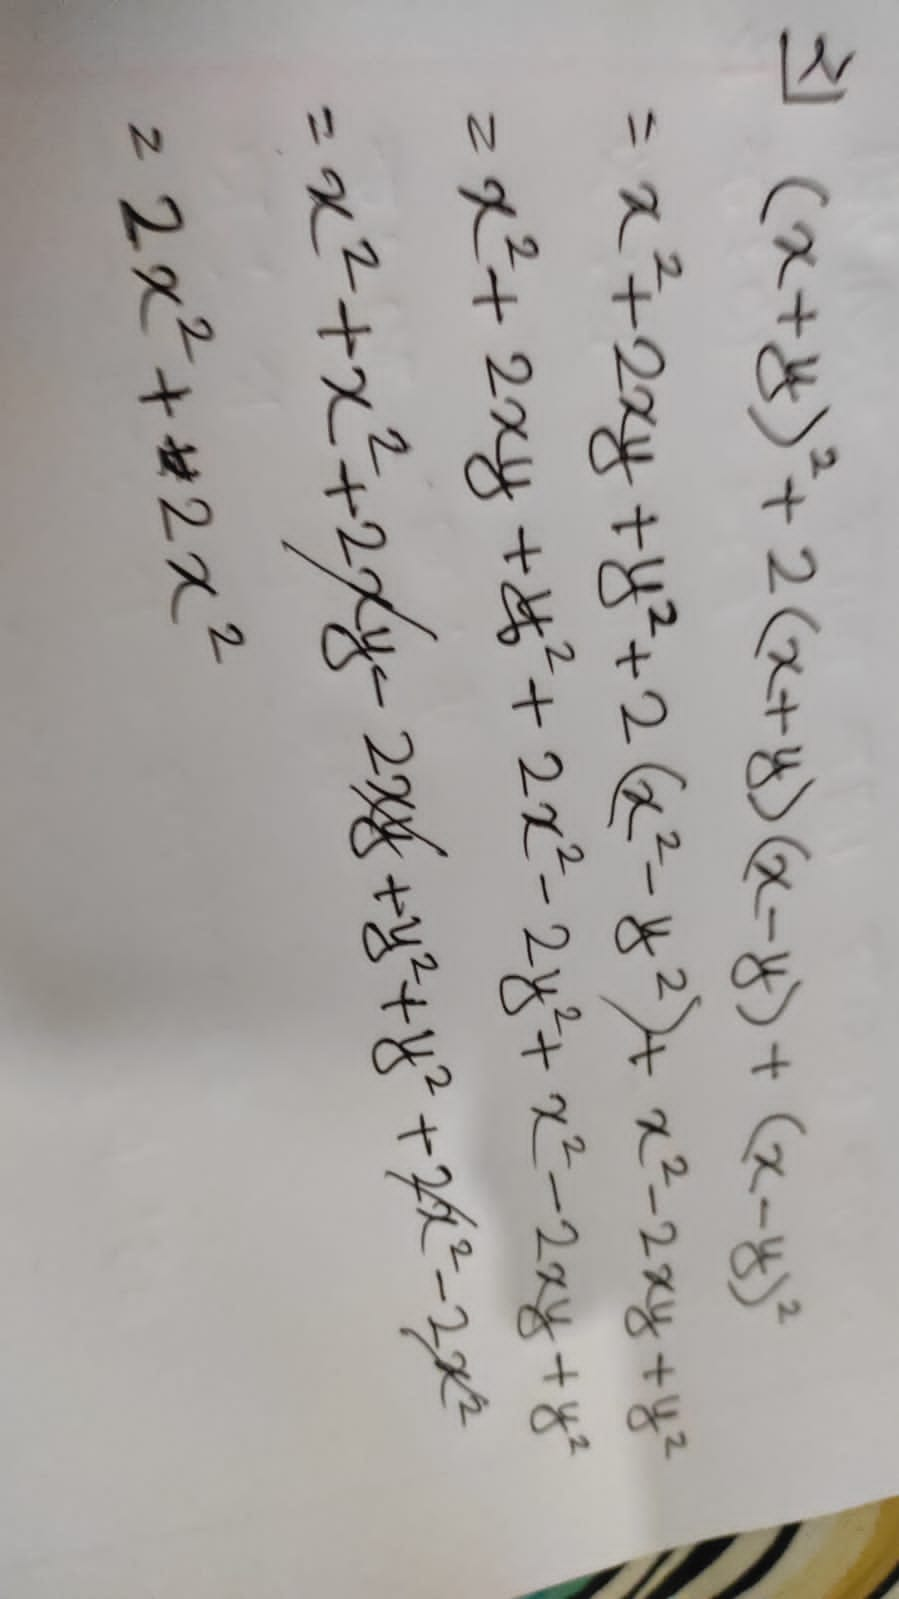 ২) (x+y)² + 2(x+y)(x-y) + (x-y)²
= x² + 2xy + y² + 2(x² - y²) + x² - 2xy + y²
= x² + 2xy + y² + 2x² - 2y² + x² - 2xy + y²
= x² + x² + 2xy - 2xy + y² + y² + 2x² - 2x²
= 2x² + 2x²